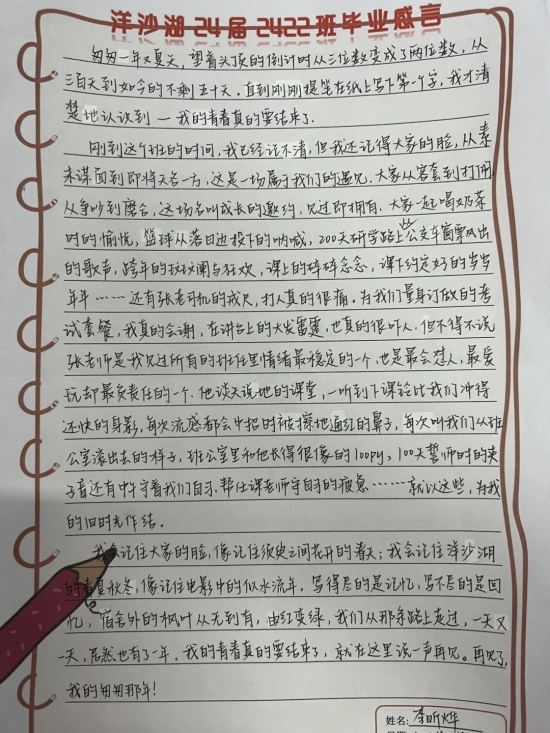 洋沙湖24届2422班毕业感言
匆匆一年又夏天，望着头顶的倒计时从三位数变成了两位数，从
三百天到如今的不剩五十天，直到刚刚提笔在纸上写下第一个字，我才清
楚地认识到 — 我的青春真的要结束了.
刚到这个班的时间，我已经记不清，但我还记得大家的脸，从素
未谋面到即将天各一方，这是一场属于我们的遇见．大家从客套到打闹
从争吵到磨合，这场名叫成长的邀约，见过即拥有．大家一起喝奶茶
时的愉悦，篮球从落日边投下的呐喊，200天研学路上些公交车窗飘风出
的歌声，跨年的斑斓与狂欢，课上的碎碎念念，课下约定好的岁岁
年年……还有张老司机的戒尺，打人真的很痛．为我们量身订做的考
试套餐，我真的会谢，在讲台上的大发雷霆，也真的很吓人，但不得不说
张老师是我见过所有的班主任里情绪最稳定的一个，也是最会怼人，最爱
玩却最负责任的一个．他谈天说地的课堂，一听到下课铃比我们冲得
还快的身影，每次流感都会中招时被擦地通红的鼻子，每次叫我们从班
公室滚出去的样子，班公室里和他长得很像的loopy，100天誓师时的夹
子音还有中午守着我们自习，帮任课老师守自习的疲惫……就以这些，为我
的旧时光作结．
我会记住大家的脸，像记住须臾之间花开的春天；我会记住洋沙湖
的春夏秋冬，像记住电影中的似水流年．写得尽的是记忆，写不尽的是回
忆，宿舍外的枫叶从无到有，由红变绿，我们从那条路上走过，一天又
一天，居然也有了一年．我的青春真的要结束了，就在这里说一声再见．再见了，
我的匆匆那年！
姓名：李昕烨